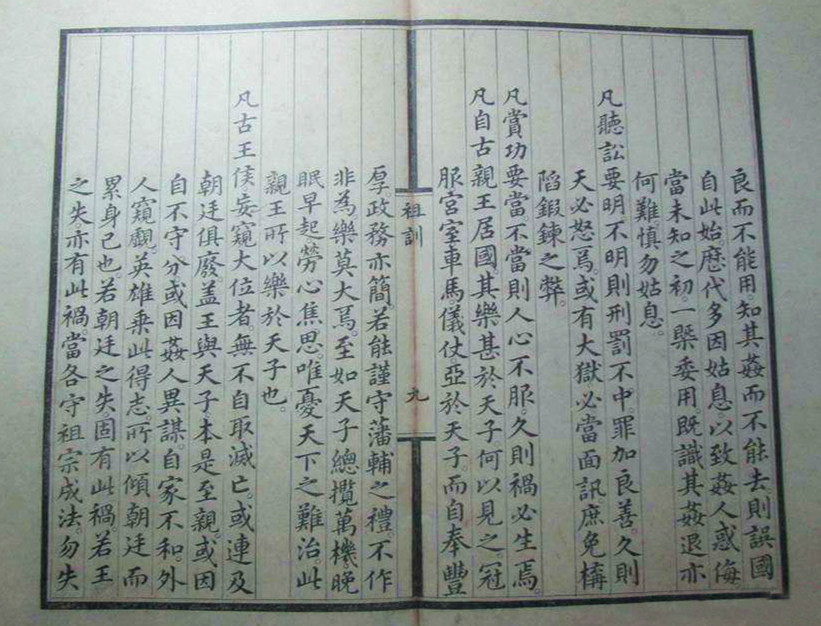 良而不能用。知其姦而不能去。則誤國
自此始。歴代多因姑息。以致姦人惑侮。
當未知之初。一槩委用。既識其姦。退亦
何難。慎勿姑息。
凡聽訟要明。不明則刑罰不中。罪加良善。久則
天必怒焉。或有大獄。必當面訊。庶免構
陷鍛鍊之弊。
凡賞功要當。不當則人心不服。久則禍必生焉。
凡自古親王居國。其樂甚於天子。何以見之。冠
服宮室車馬儀仗亞於天子。而自奉豐
祖訓
九
厚。政務亦簡。若能謹守藩輔之禮。不作
非為。樂莫大焉。至如天子。總攬萬機。晚
眠早起。勞心焦思。唯憂天下之難治。此
親王所以樂於天子也。
凡古王侯。妄窺大位者。無不自取滅亡。或連及
朝廷俱廢。蓋王與天子。本是至親。或因
自不守分。或因姦人異謀。自家不和。外
人窺覷。英雄乘此得志。所以傾朝廷而
累身己也。若朝廷之失。固有此禍。若王
之失。亦有此禍。當各守祖宗成法。勿失